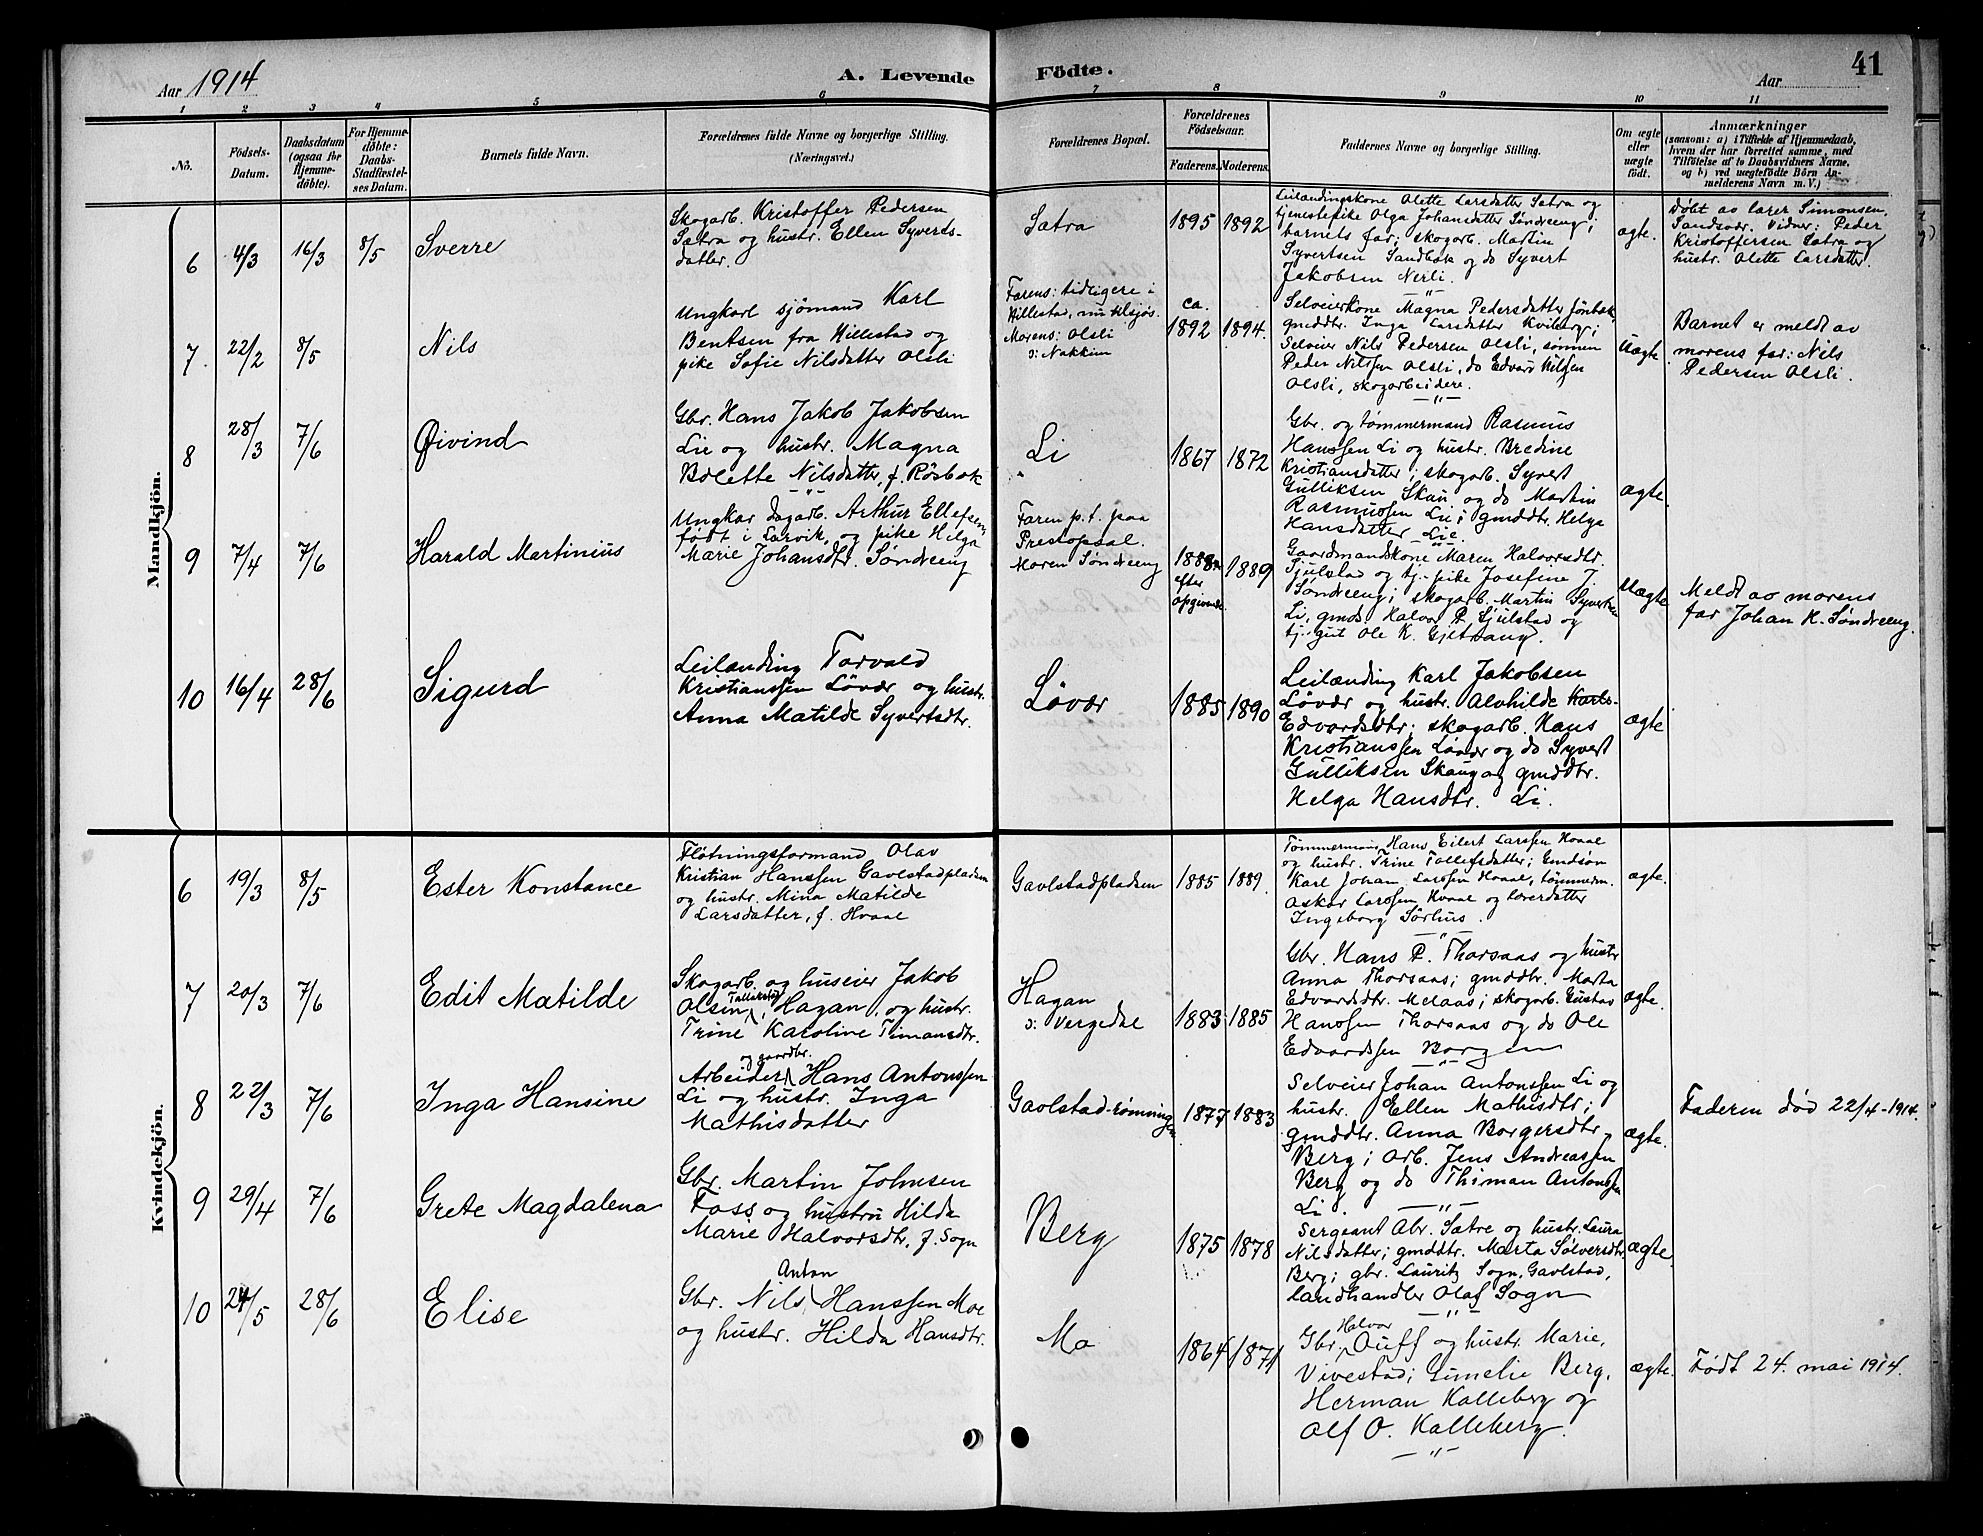 Aar 1914
A. Levende Födte.
Aar
41
1 2 3 4 5 6 7 8 9 10 11
No.
Födsels-
Datum.
Daabsdatum
(ogsaa for
Hjemme-
døbte).
For Hjemme-
døbte:
Daabs-
Stadfæstel-
ses Datum.
Barnets fulde Navn.
Forældrenes fulde Navne og borgerlige Stilling.
(Næringsvei.)
Forældrenes Bopæl.
Forældrenes
Födselsaar.
Faderens. Moderens.
Faddernes Navne og borgerlige Stilling.
Om ægte
eller
uægte
født.
Anmærkninger
(saasom: a) i Tilfælde af Hjemmedaab,
hvem der har forrettet samme, med
Tilføielse af to Daabsvidners Navne,
og b) ved uægtefødte Børn An-
melderens Navn m. V.)
Mandkjön.
6
4/3
16/3
8/5
Sverre
Skogarb. Kristoffer Pedersen
Sætra og hustr. Ellen Syverts-
datter.
Sætra
1895 1892
Leilændingskone Olette Larsdatter Sætra og
tjenestepike Olga Johansdatter Søndreeng;
barnets far; skogarb. Martin
Syvertsen Sandbæk og do Syvert
Jakobsen Nerli.
ægte.
Døbt av lærer Simonsen,
Sandsvær. Vidner: Peder
Kristoffersen Sætra og
hustr. Olette Larsdatter.
7
22/2
8/5
Nils
Ungkarl sjömand Karl
Bentsen fra Hillestad og
pike Sofie Nilsdatter Olsli
Farens: tidligere i
Hillestad, nu tilsjøs.
Morens: Olsli
i Nakkim
ca.
1892 1894.
Selveierkone Magna Pedersdatter Jönbak,
gmddtr. Inga Larsdatter Kviberg;
Selveier Nils Pedersen Olsli, sönnen
Peder Nilssen Olsli, do Edvard Nilssen
Olsli, skogarbeidere.
Uægte.
Barnet er meldt av
morens far: Nils
Pedersen Olsli.
8
28/3
7/6
Øivind
Gbr. Hans Jakob Jakobsen
Lie og hustr. Magna
Bolette Nilsdatter, f. Rösbæk
Li
1867 1872
Gbr. og tømmermand Rasmus
Hanssen Li og hustr. Bredine
Kristiansdatter; skogarb. Syvert
Gulliksen Skau og do Martin
Rasmussen Li; gmddtr. Helga
Hansdatter Lie.
ægte
9
7/4
7/6
Harald Martinius
Ungkar dagarb. Arthur Ellefsen
født i Larvik, og pike Helga
Marie Johansdtr. Søndreeng
Faren p.t. paa
Prestopsal.
Moren Søndreeng
1888
efter
opgivende.
1889
Gaardmandskone Maren Halvorsdtr.
Sjulstad og tj. pike Josefine J.
Søndreeng; skogarb. Martin Syvertsen
Li, gmds. Halvor P. Sjulstad og
tj. gut Ole K. Gjetrang.
Uægte
Meldt av morens
far Johan K. Søndreeng.
10
16/4
28/6
Sigurd
Leilænding Torvald
Kristianssen Løvær og hustr.
Anna Matilde Syvertsdtr.
Løvær
1885 1890
Leilænding Karl Jakobsen
Løvær og hustr. Alvhilde Karls-
Edvardsdtr; skogarb. Hans
Kristianssen Løvær og do Syvert
Gulliksen Skau og gmddtr.
Helga Hansdtr. Li.
ægte
Kvindekjön.
6
19/3
8/5
Ester Konstance
Fløtningsformand Olav
Kristian Hanssen Gavlstadpladsen
og hustr. Mina Matilde
Larsdatter, f. Hvaal
Gavlstadpladsen
1885 1889.
Tömmermann Hans Eilert Larssen Hvaal
og hustr. Trine Tollefsdatter; Gmdsön
Karl Johan Larssen Hvaal, tömmerm.
Oskar Larssen Hvaal og lærerdatter
Ingeborg Sörhus.
ægte.
7
20/3
7/6
Edit Matilde
Skogarb. og huseier Jakob
Olsen, Hagan, og hustr.
Trine Karoline Timansdtr.
Hagan
i Vergedal
1883 1885
Gbr. Hans P. Thorsaas og hustr
Anna Thorsaas; gmddtr. Marta
Edvardsdtr. Melaas; skogarb. Gustav
Hanssen Thorsaas og do Ole
Edvardssen Borgen
ægte.
8
22/3
7/6
Inga Hansine
og gaardbr.
Arbeider Hans Antonssen
Li og hustr. Inga
Mathisdatter
Gavlstad-rømningen
1877 1883
Selveier Johan Antonssen Li og
hustr. Ellen Mathisdtr;
gmddtr. Anna Borgersdtr
Berg; arb. Jens Andreassen
Berg og do Thiman Antonssen
Li.
ægte.
Faderen död 22/4-1914.
9
29/4
7/6
Grete Magdalena
Gbr. Martin Johnsen
Foss og hustru Hilda
Marie Halvorsdtr, f. Sogn
Berg
1875 1878
Sergeant Abr. Sætre og hustr. Laura
Nilsdatter; gmddtr. Marta Sølversdtr
Berg; gbr. Lauritz Sogn, Gavlstad,
landhandler Olaf Sogn
ægte
10
24/5
28/6
Elise
Anton
Gbr. Nils Hanssen Moe
og hustr. Hilda Hansdtr.
Mo
1864 1871
Halvor
Gbr. Ouff og hustr. Marie,
Vivestad; Gunelie Berg,
Herman Kalleberg og
Olf O. Kalleberg.
ægte.
Født 24. mai 1914.